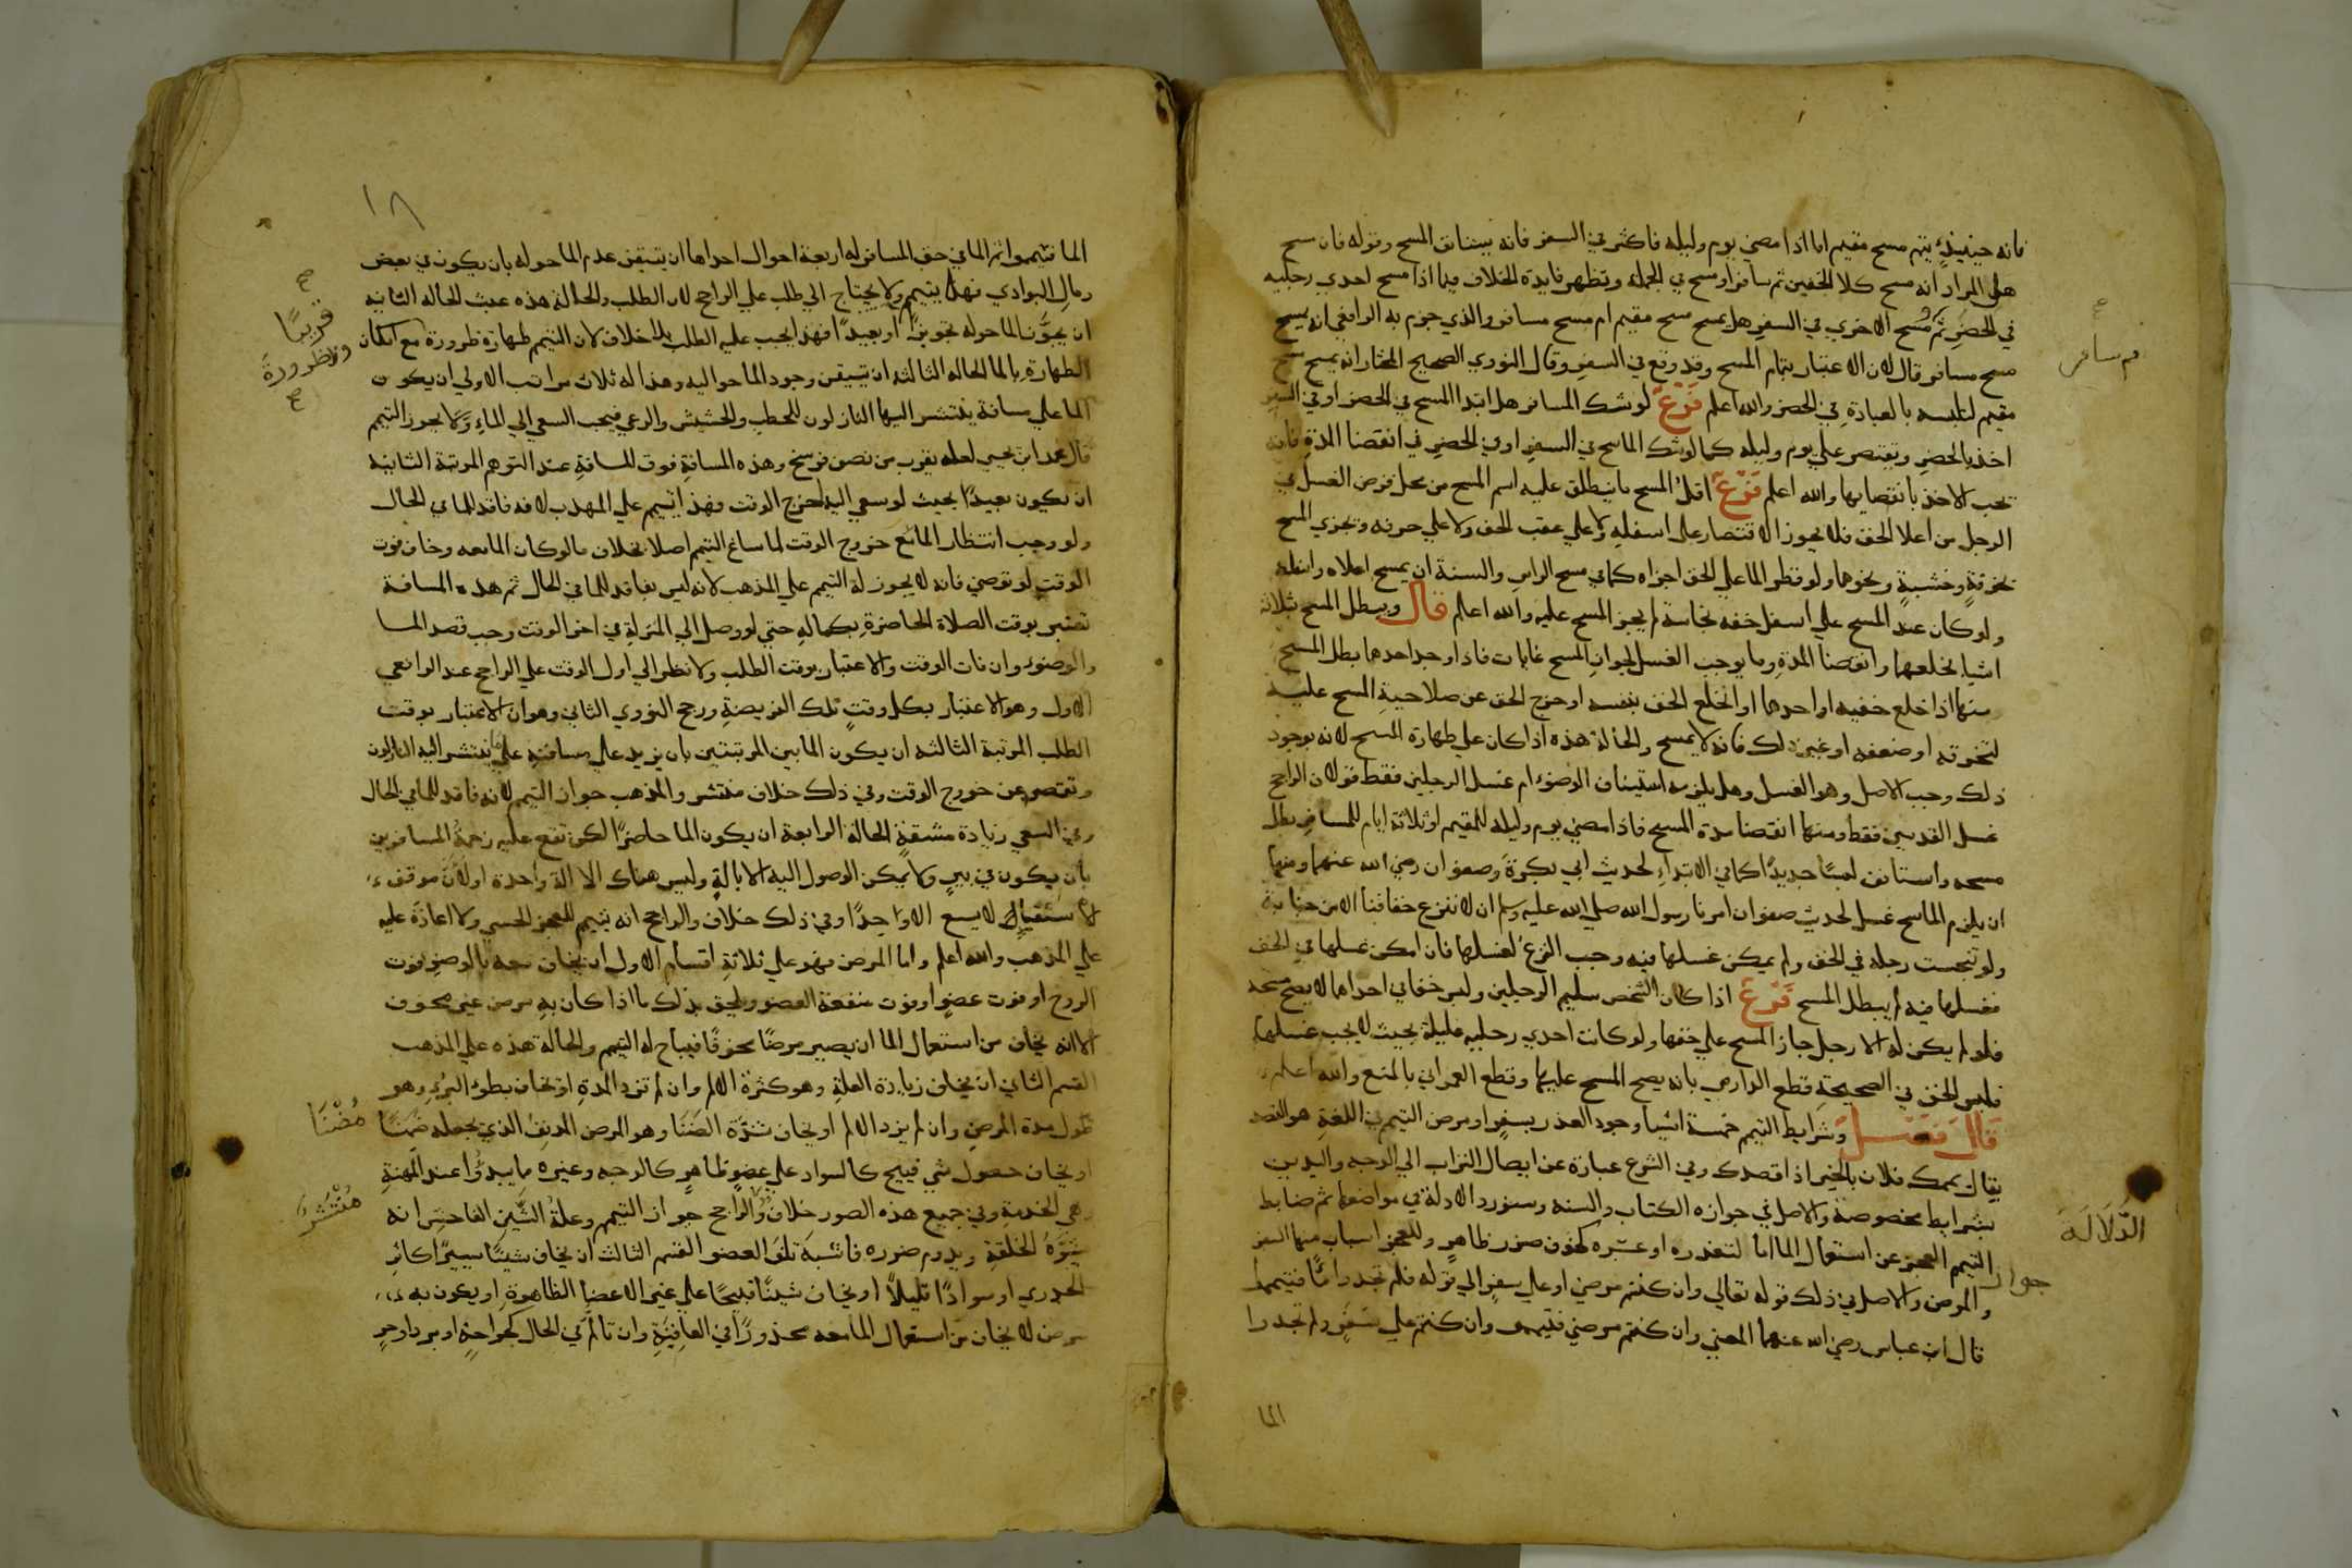 فانه حينيذٍ يتم مسح مقيم اما اذا مضي يوم وليله فاكثر في السفر فانه يستانف المسح وقوله فان مسح
هل المراد انه مسح كلا الخفين ثم سافر او مسح في الجملة وتظهر فايدة الخلاف فيما اذا مسح احدي رجليه
في الحضر ثم مسح الاخري في السفر هل يمسح مسح مقيم ام مسح مسافر والذي جزم به الرافعي انه يمسح
ثم سافر
مسح مسافر قال لان الاعتبار بتمام المسح وقد وقع في السفر وقال النووي الصحيح المختار انه يمسح مسح
مقيم لتلبسه بالعبادة في الحضر والله اعلم فرع لو شك المسافر هل ابتدا المسح في الحضر او في السفر
اخذ بالحضر ويقتصر علي يوم وليله كما لو شك الماسح في السفر او في الحضر في انقضا المدة فانه
يجب الاخذ بانقضايها والله اعلم فرع اقل المسح ما ينطلق عليه اسم المسح من محل فرض الغسل في
الرجل من اعلا الخف فلا يجوز الاقتصار علي اسفله ولا علي عقب الخف ولا علي حرفه ويجزي المسح
بخرقةٍ وخشبةٍ ونحوها ولو قطر الما علي الخف اجزاه كما في مسح الراس والسنة ان يمسح اعلاه واسفله
ولو كان عند المسح علي اسفل خفه نجاسة لم يجز المسح عليه والله اعلم قال ويبطل المسح بثلاثة
اشيا بخلعهما وانقضا المدة وما يوجب الغسل لجواز المسح غايات فاذا وجد احدها بطل المسح
منها اذا خلع خفيه او احدهما او انخلع الخف بنفسه او خرج الخف عن صلاحية المسح عليه
لتخرقه او ضعفه او غير ذلك فانه لا يمسح والحالة هذه اذا كان علي طهارة المسح لانه بوجود
ذلك وجب الاصل وهو الغسل وهل يلزمه استيناف الوضوء ام غسل الرجلين فقط قولان الراجح
غسل القدمين فقط ومنها انقضا مدة المسح فاذا مضي يوم وليله للمقيم او ثلاثة ايام للمسافر بطل
مسحه واستانف لبسًا جديدًا كما في الابتداء لحديث ابي بكرة وصفوان رضي الله عنهما ومنها
ان يلزم الماسح غسل لحديث صفوان امرنا رسول الله صلي الله عليه وسلم ان لا ننزع خفافنا الا من جنابة
ولو تنجست رجله في الخف ولم يمكن غسلها فيه وجب النزع لغسلها فان امكن غسلها في الخف
فغسلها فيه لم يبطل المسح فرع اذا كان الشخص سليم الرجلين ولبس خفا في احداها لا يصح مسحه
فلو لم يكن له الا رجل جاز المسح علي خفها ولو كانت احدي رجليه عليلة بحيث لا يجب غسلها
فلبس الخف في الصحيحة قطع الدارمي بانه يصح المسح عليها وقطع العمراني بالمنع والله اعلم
قال فصل وشرايط التيمم خمسة اشيا وجود العذر بسفر او مرض التيمم في اللغة هو القصد
يقال يممك فلان بالخير اذا قصدك وفي الشرع عبارة عن ايصال التراب الي الوجه واليدين
بشرايط مخصوصة والاصل في جوازه الكتاب والسنه وسنورد الادلة في مواضعها ثم ضابط
الدَّلَالَة
جواز التيمم العجز عن استعمال الما اما لتعذره او عسره لخوف ضرر ظاهر وللعجز اسباب منها السفر
والمرض والاصل في ذلك قوله تعالي وان كنتم مرضي او علي سفر الي قوله فلم تجدوا ماًء فتيمموا
قال ابن عباس رضي الله عنهما المعني وان كنتم مرضي فتيمموا وان كنتم علي سفر ولم تجدوا
الما
١٨
الما فتيمموا ثم الما في حق المسافر له اربعة احوال احداها ان يتيقن عدم الما حوله بان يكون في بعض
رمال البوادي فهذا يتيمم ولا يحتاج الي طلب علي الراجح لان الطلب والحالة هذه عبث الحاله الثانيه
ان يجوز الما حوله تجويزًا او بعيدًا فهذا يجب عليه الطلب بلا خلاف لان التيمم طهارة ضرورة مع امكان
قريبًا
ولا ضرورة
الطهارة بالما الحاله الثالثه ان يتيقن وجود الما حواليه وهذا له ثلاث مراتب الاولي ان يكون
الما علي مسافة ينتشر اليها النازلون للحطب والحشيش والرعي فيجب السعي الي الماء ولا يجوز التيمم
قال محمد ابن يحيي لعله يقرب من نصف فرسخ وهذه المسافة فوق المسافة عند التوهم المرتبة الثانية
ان يكون بعيدًا بحيث لو سعي اليه لخرج الوقت فهذا يتيمم علي المذهب لانه فاقد للما في الحال
ولو وجب انتظار الما مع خروج الوقت لما ساغ التيمم اصلا بخلاف ما لو كان الما معه وخاف فوت
الوقت لو توضي فانه لا يجوز له التيمم علي المذهب لانه ليس بفاقد للما في الحال ثم هذه المسافة
تعتبر بوقت الصلاة الحاضرة بكماله حتي لو وصل الي المنزلة في اخر الوقت وجب قصد الما
والوضوء وان فات الوقت والاعتبار بوقت الطلب ولا نظر الي اول الوقت علي الراجح عند الرافعي
الاول وهو الاعتبار بكل وقت تلك الفريضة ورجح النووي الثاني وهو ان الاعتبار بوقت
الطلب المرتبة الثالثه ان يكون الما بين المرتبتين بان يزيد علي مسافته علي ما ينتشر اليه النازلون
وتقصر عن خروج الوقت وفي ذلك خلاف منتشر والمذهب جواز التيمم لانه فاقد للما في الحال
وفي السعي زيادة مشقةٍ الحالة الرابعة ان يكون الما حاضرًا لكن تقع عليه زحمة المسافرين
بان يكون في بيرٍ ولا يمكن الوصول اليه الا بالةٍ وليس هناك الا الة واحدة او لان موقف
الاستقيال لا يسع الا واحدًا وفي ذلك خلاف والراجح انه يتيمم للعجز الحسي ولا اعادة عليه
علي المذهب والله اعلم واما المرض فهو علي ثلاثة اقسام الاول ان يخاف معه بالوضو فوت
الروح او فوت عضوٍ او فوت منفعة العضو ويلحق بذلك ما اذا كان به مرض غير مخوف
الا انه يخاف من استعمال الما ان يصير مرضًا مخوفًا فيباح له التيمم والحالة هذه علي المذهب
القسم الثاني ان يخاف زيادة العلة وهو كثرة الالم وان لم تزد المدة او يخاف بطوء البرء وهو
طول مدة المرض وان لم يزد الالم او يخاف شدة الضنا وهو المرض المدنف الذي يجعله ضمنًا
مُضْنًا
او يخاف حصول شي قبيح كالسواد علي عضو ظاهرٍ كالوجه وغيره مما يبدوا عند المهنة
وهي الخدمة وفي جميع هذه الصور خلاف والراجح جواز التيمم وعلة الشين الفاحش انه
مُنْتَشِر
يشوه الخلقة ويدوم ضرره فاشبه تلف العضو القسم الثالث ان يخاف شينًا يسيرًا كاثر
الجدري او سوادًا قليلًا او يخاف شينًا قبيحًا علي غير الاعضا الظاهرة او يكون به
مرض لا يخاف من استعمال الما معه محذورًا في العافية وان تالم في الحال كجراحةٍ او بردٍ او حرٍ